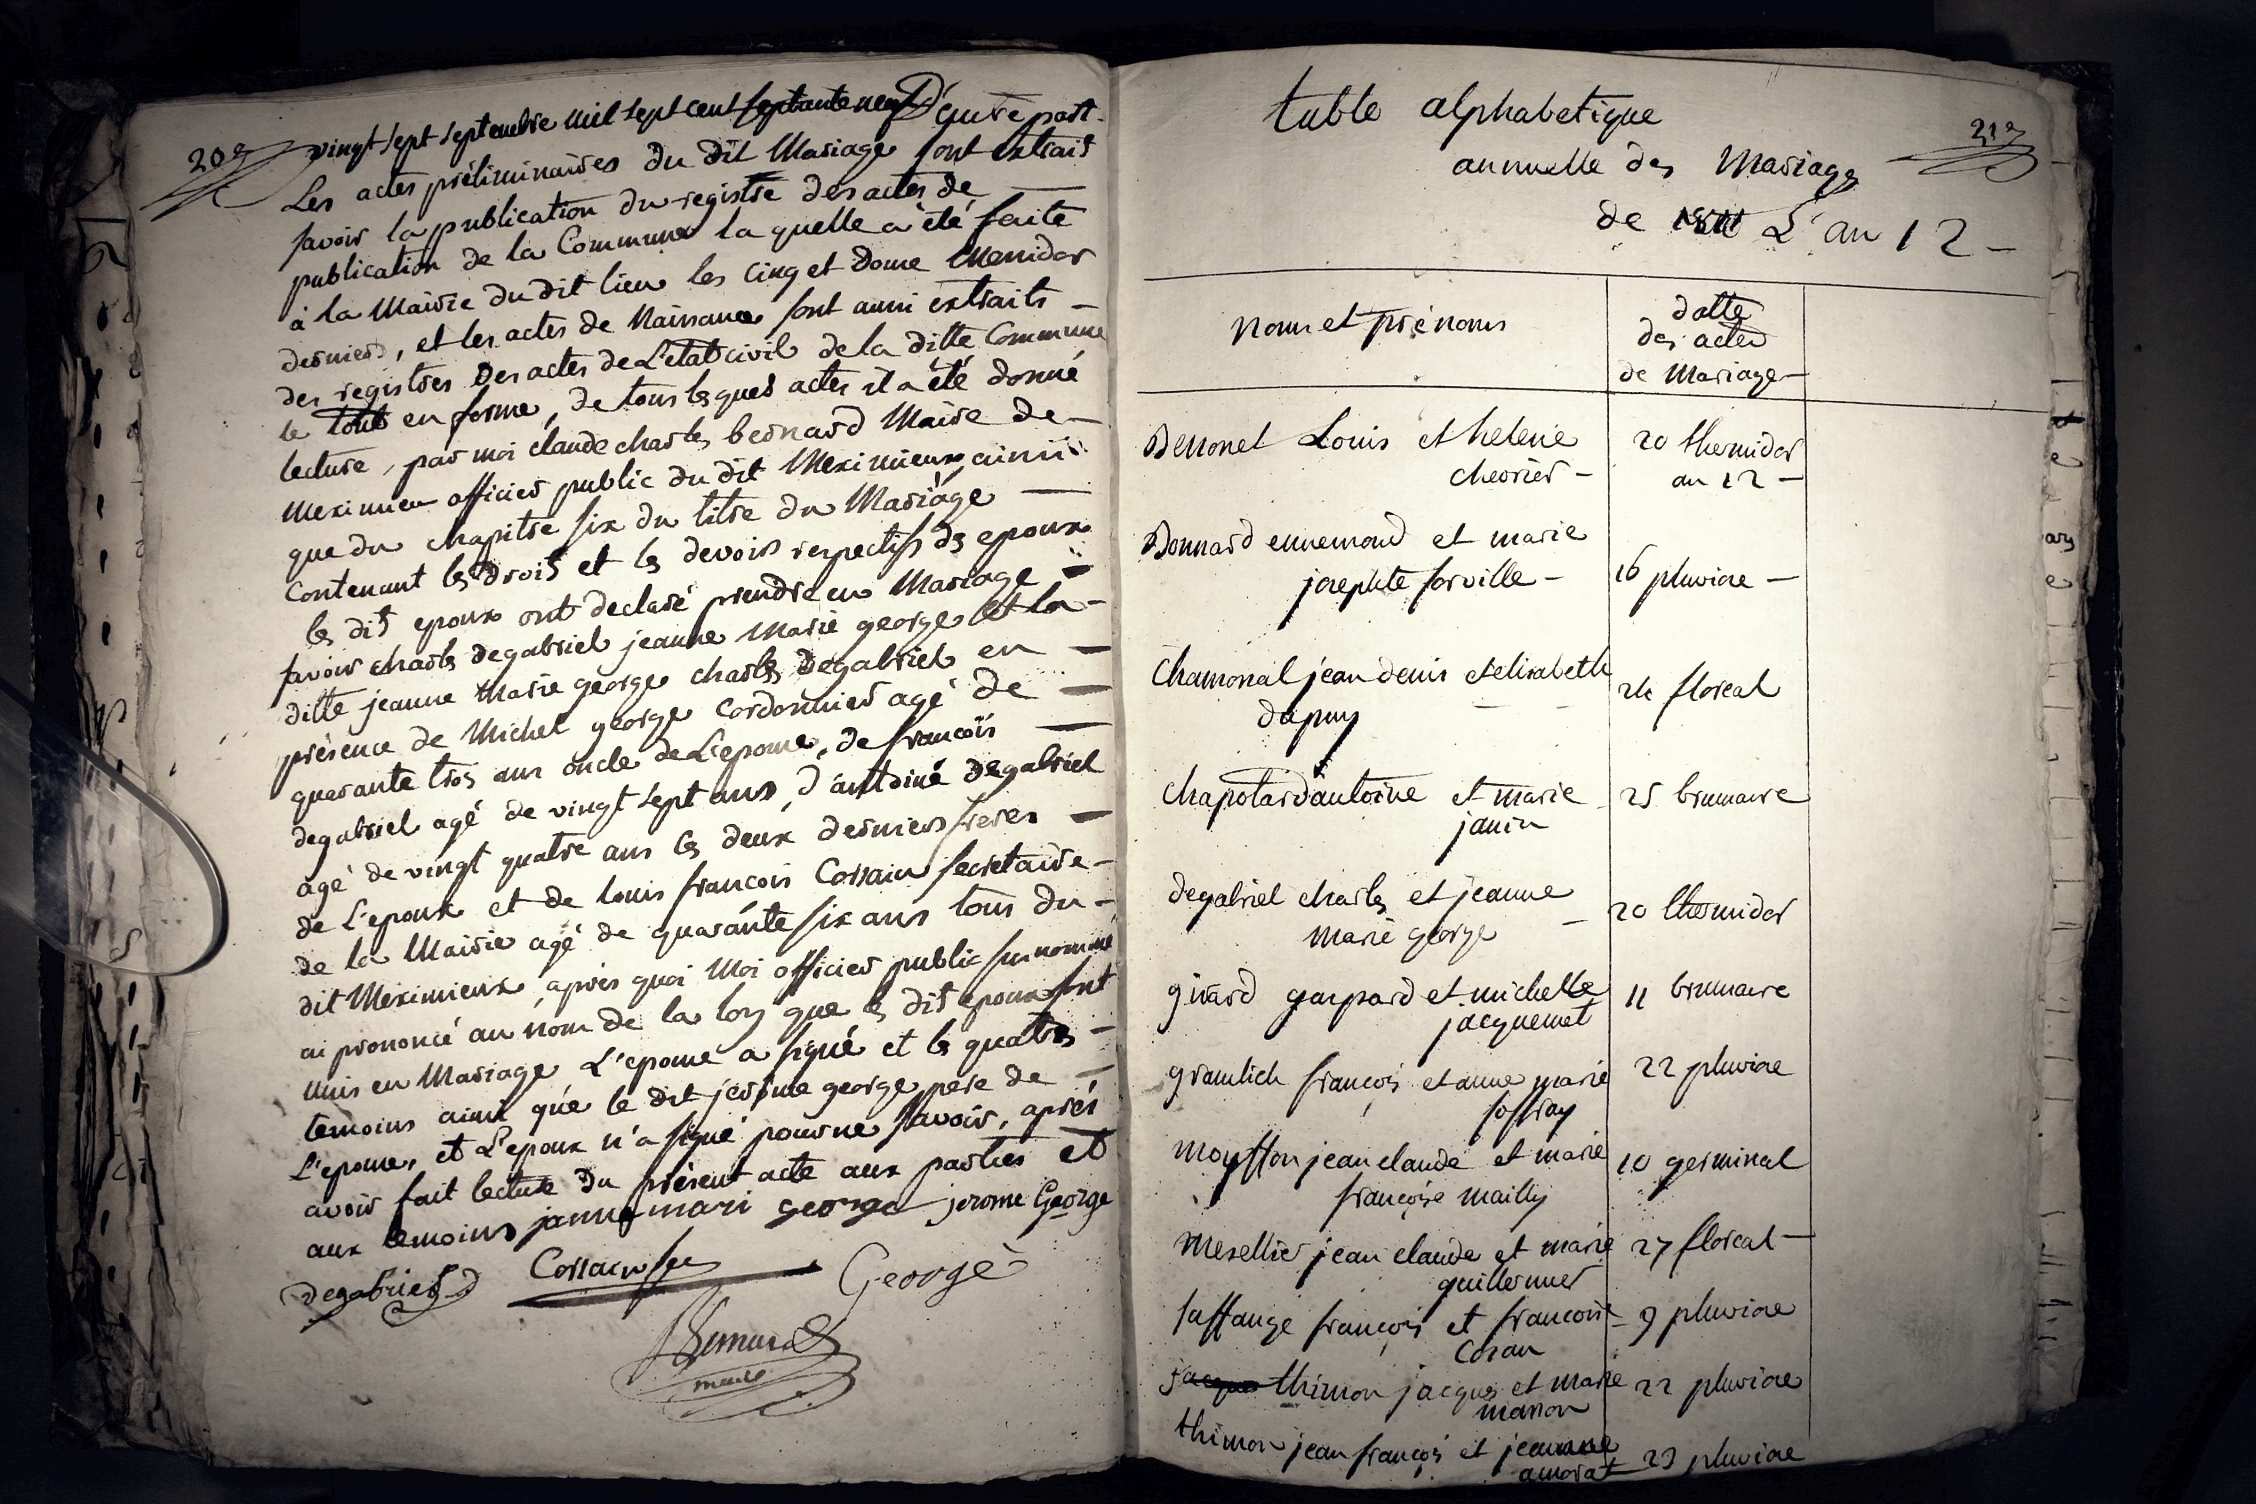 20e
vingt sept septembre mil sept cent septante neuf D'autre part.
Les actes préliminaires du dit Mariage sont extrais
savoir la publication du registre des actes de
publication de la Commune la quelle a été faite
à la Mairie du dit lieu les cinq et Messidor
dernier, et les actes de Naissance sont aussi extraits
des registres des actes de L'etat civil de la ditte Commune
le tout en forme, de tous lesquels actes il a été donné
lecture, par moi claude charles bernard Maire de
Meximieu officier public du dit Meximieux ainsi
que du chapitre six du titre du Mariage
Contenant les droits et les devoirs respectifs des epoux
les dits epoux ont declaré prendre en Mariage
savoir charles degabriel jeanne Marie george et la
ditte jeanne Marie george charles degabriel en
présence de Michel george Cordonnier agé de
quarante trois ans oncle de L'epouse, de françois
degabriel agé de vingt sept ans, d'antoine degabriel
agé de vingt quatre ans les deux derniers freres
de L'epoux et de louis françois Cossain secretaire
de la Mairie agé de quarante six ans tous du
dit Meximieux, après quoi Moi officier public susnommé
ai prononcé au nom de la loy que les dits epoux sont
unis en Mariage L'epouse a signé et les quatres
temoins ainsi que le dit jerôme george pere de
L'epouse, et L'epoux n'a signé pour ne savoir, après
avoir fait lecture du présent acte aux parties et
aux temoins janne mari george jerome George
degabriel Cossain George
Bernard
maire
table alphabetique
21e
annuelle des Mariages
de L'an 12
noms et prénoms
datte
des actes
de Mariage
Louis et helene 20 thermidor
chevrier an 12
Bonnard ennemond et marie
josephte forville 16 pluviose
Chamonal jean denis et elisabeth 24 floreal
dupuy
chapotard antoine et marie 25 brumaire
janin
degabriel charles et jeanne 20 thermidor
marie george
girard gaspard et michelle 11 brumaire
jacquemet
gramlich françois et anne marie 22 pluviose
joffray
moyffon jean claude et marie 10 germinal
françoise mailly
mesellier jean claude et marie 27 floreal
guillermier
saffange françois et francoise 9 pluviose
Cosan
jacques thimon jacques et marie 22 pluviose
masson
thimon jean françois et jeanne 23 pluviose
amorat